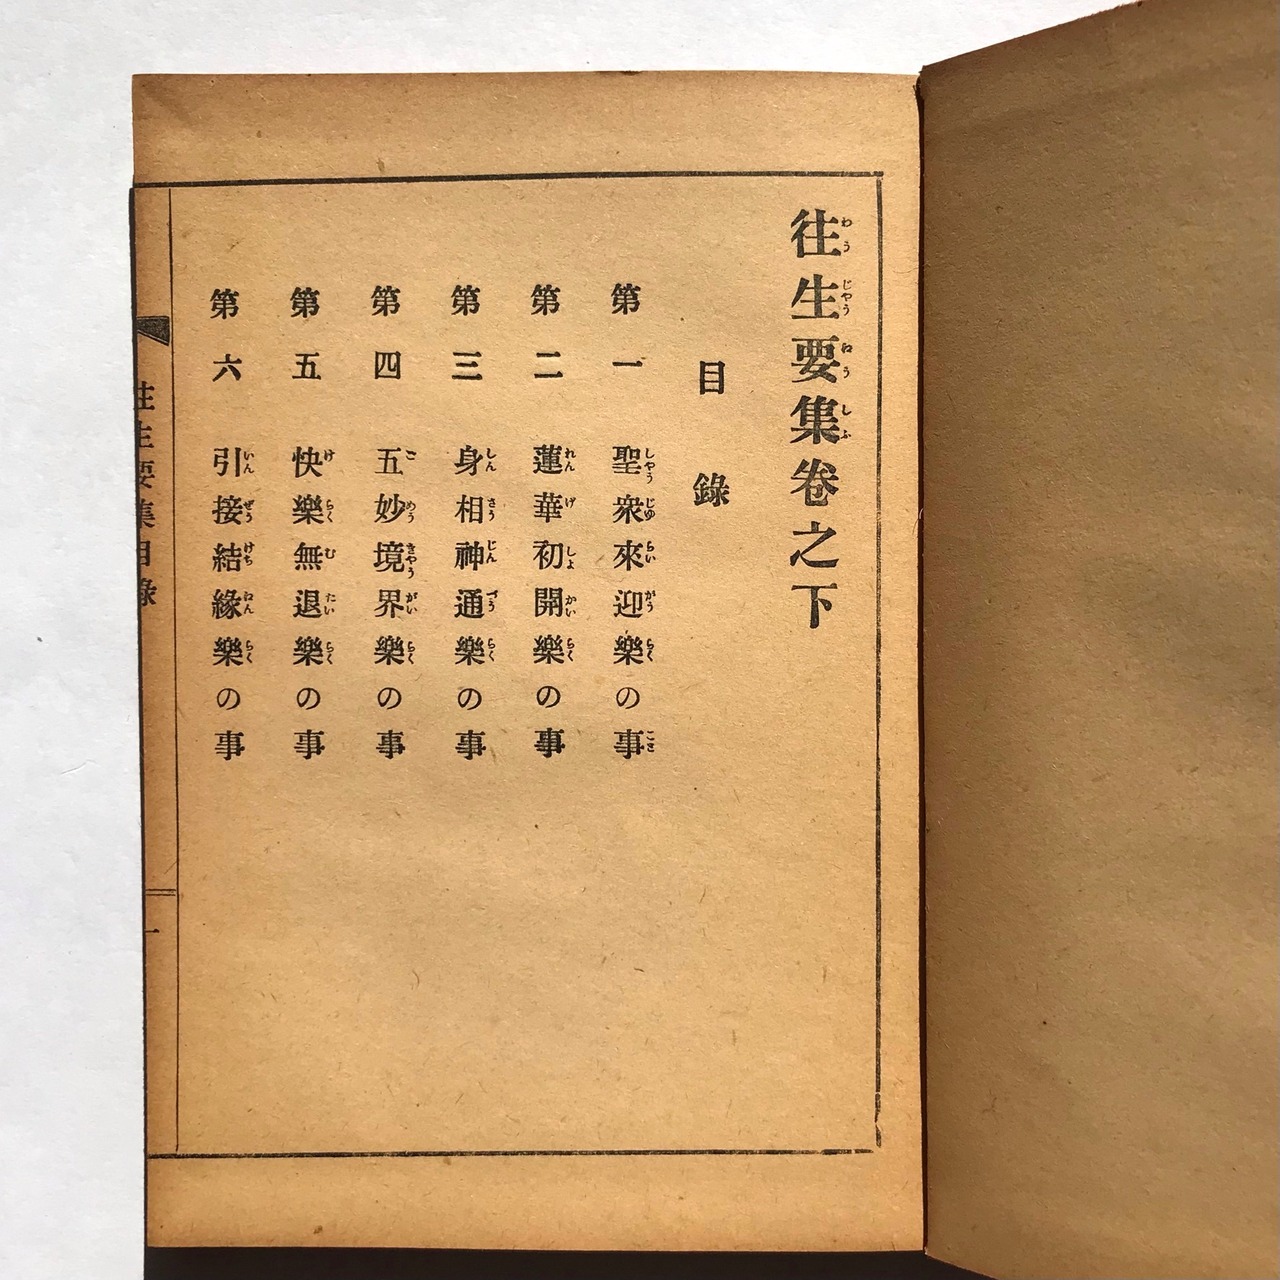 往生要集卷之下
目錄
第一 聖衆來迎樂の事
第二 蓮華初開樂の事
第三 身相神通樂の事
第四 五妙境界樂の事
第五 快樂無退樂の事
第六 引接結緣樂の事
往生要集目錄
一